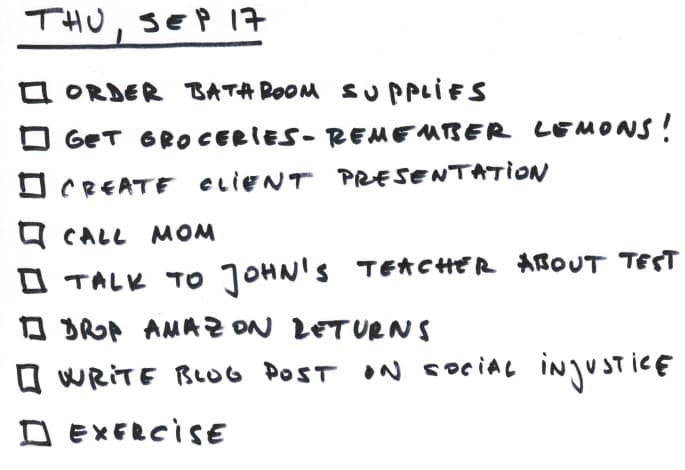 THU, SEP 17
ORDER BATHROOM SUPPLIES
GET GROCERIES - REMEMBER LEMONS!
CREATE CLIENT PRESENTATION
CALL MOM
TALK TO JOHN'S TEACHER ABOUT TEST
DROP AMAZON RETURNS
WRITE BLOG POST ON SOCIAL INJUSTICE
EXERCISE